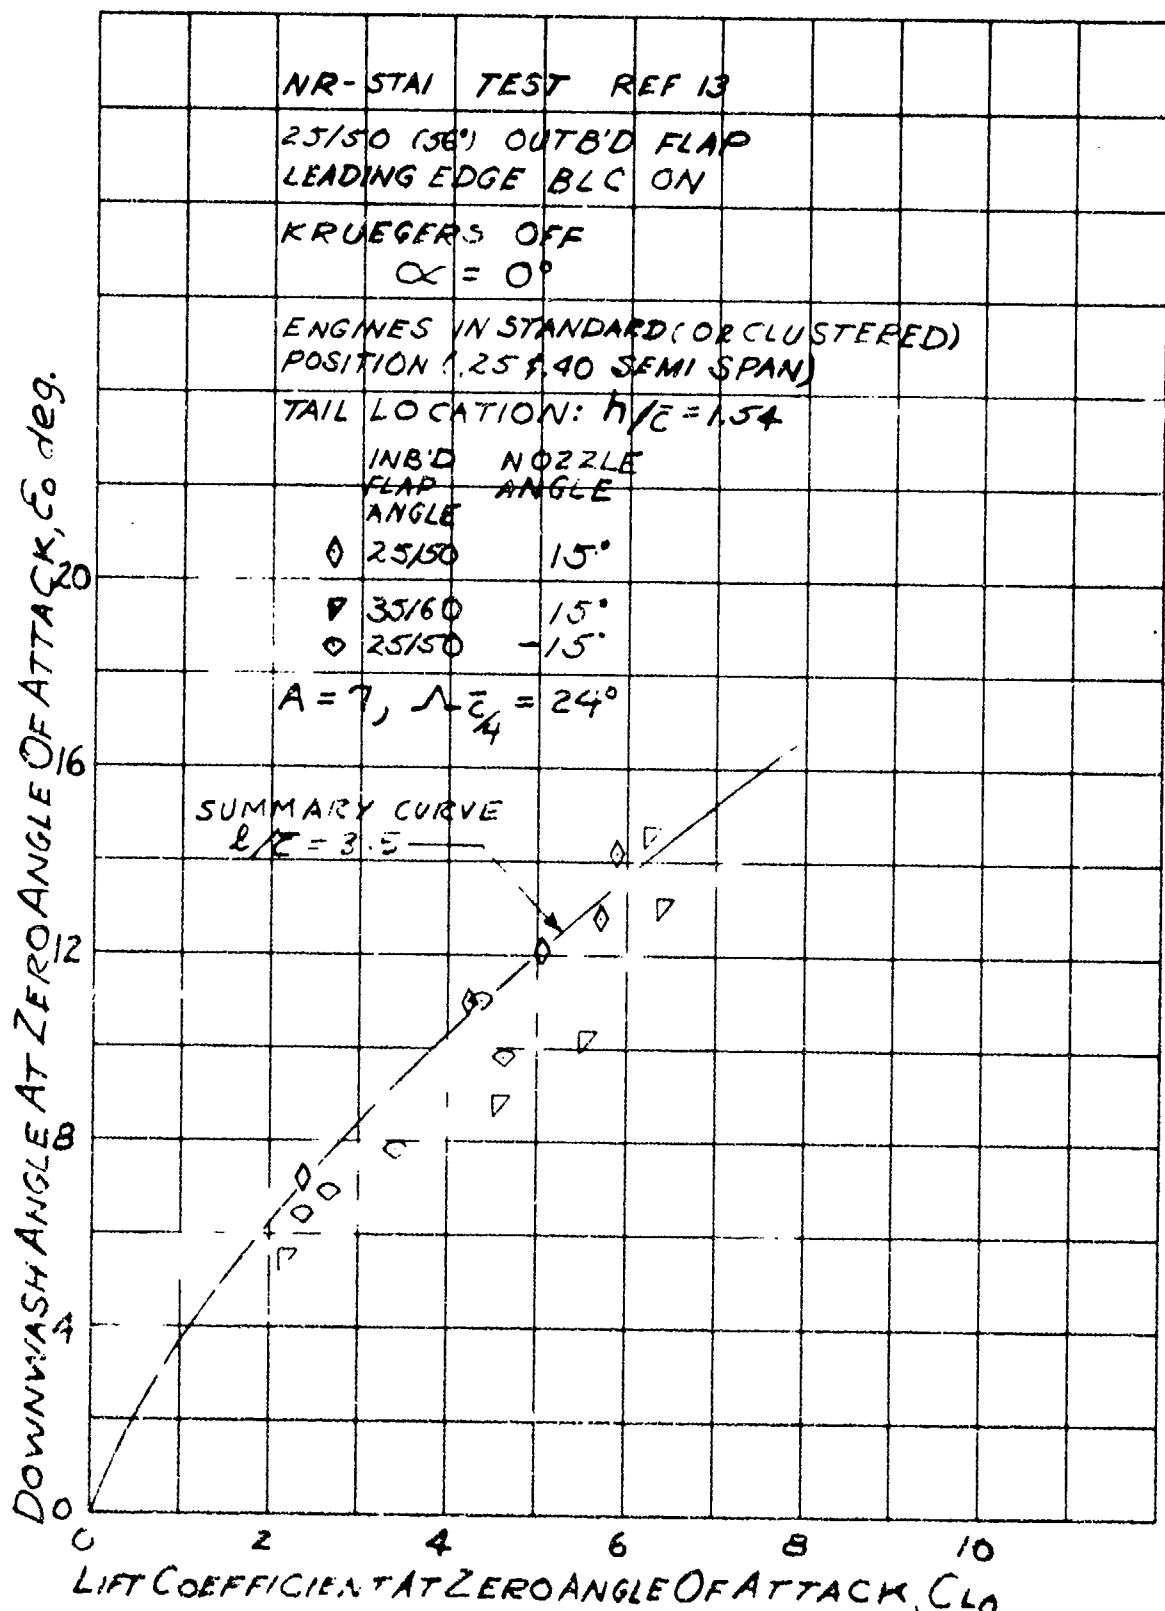 NR-STAI TEST REF 13
25/50 (56°) OUTB'D FLAP
LEADING EDGE BLC ON
KRUEGERS OFF
α = 0°
ENGINES IN STANDARD (OR CLUSTERED)
POSITION (.25 & .40 SEMI SPAN)
TAIL LOCATION: h/c̄ = 1.54
INB'D NOZZLE
FLAP ANGLE
ANGLE
25/50 15°
35/60 15°
25/50 -15°
A = 7, Λc̄/4 = 24°
SUMMARY CURVE
ℓ/c̄ = 3.5
DOWNWASH ANGLE AT ZERO ANGLE OF ATTACK, Ɛo deg.
20
16
12
8
4
0
0 2 4 6 8 10
LIFT COEFFICIENT AT ZERO ANGLE OF ATTACK, CLo